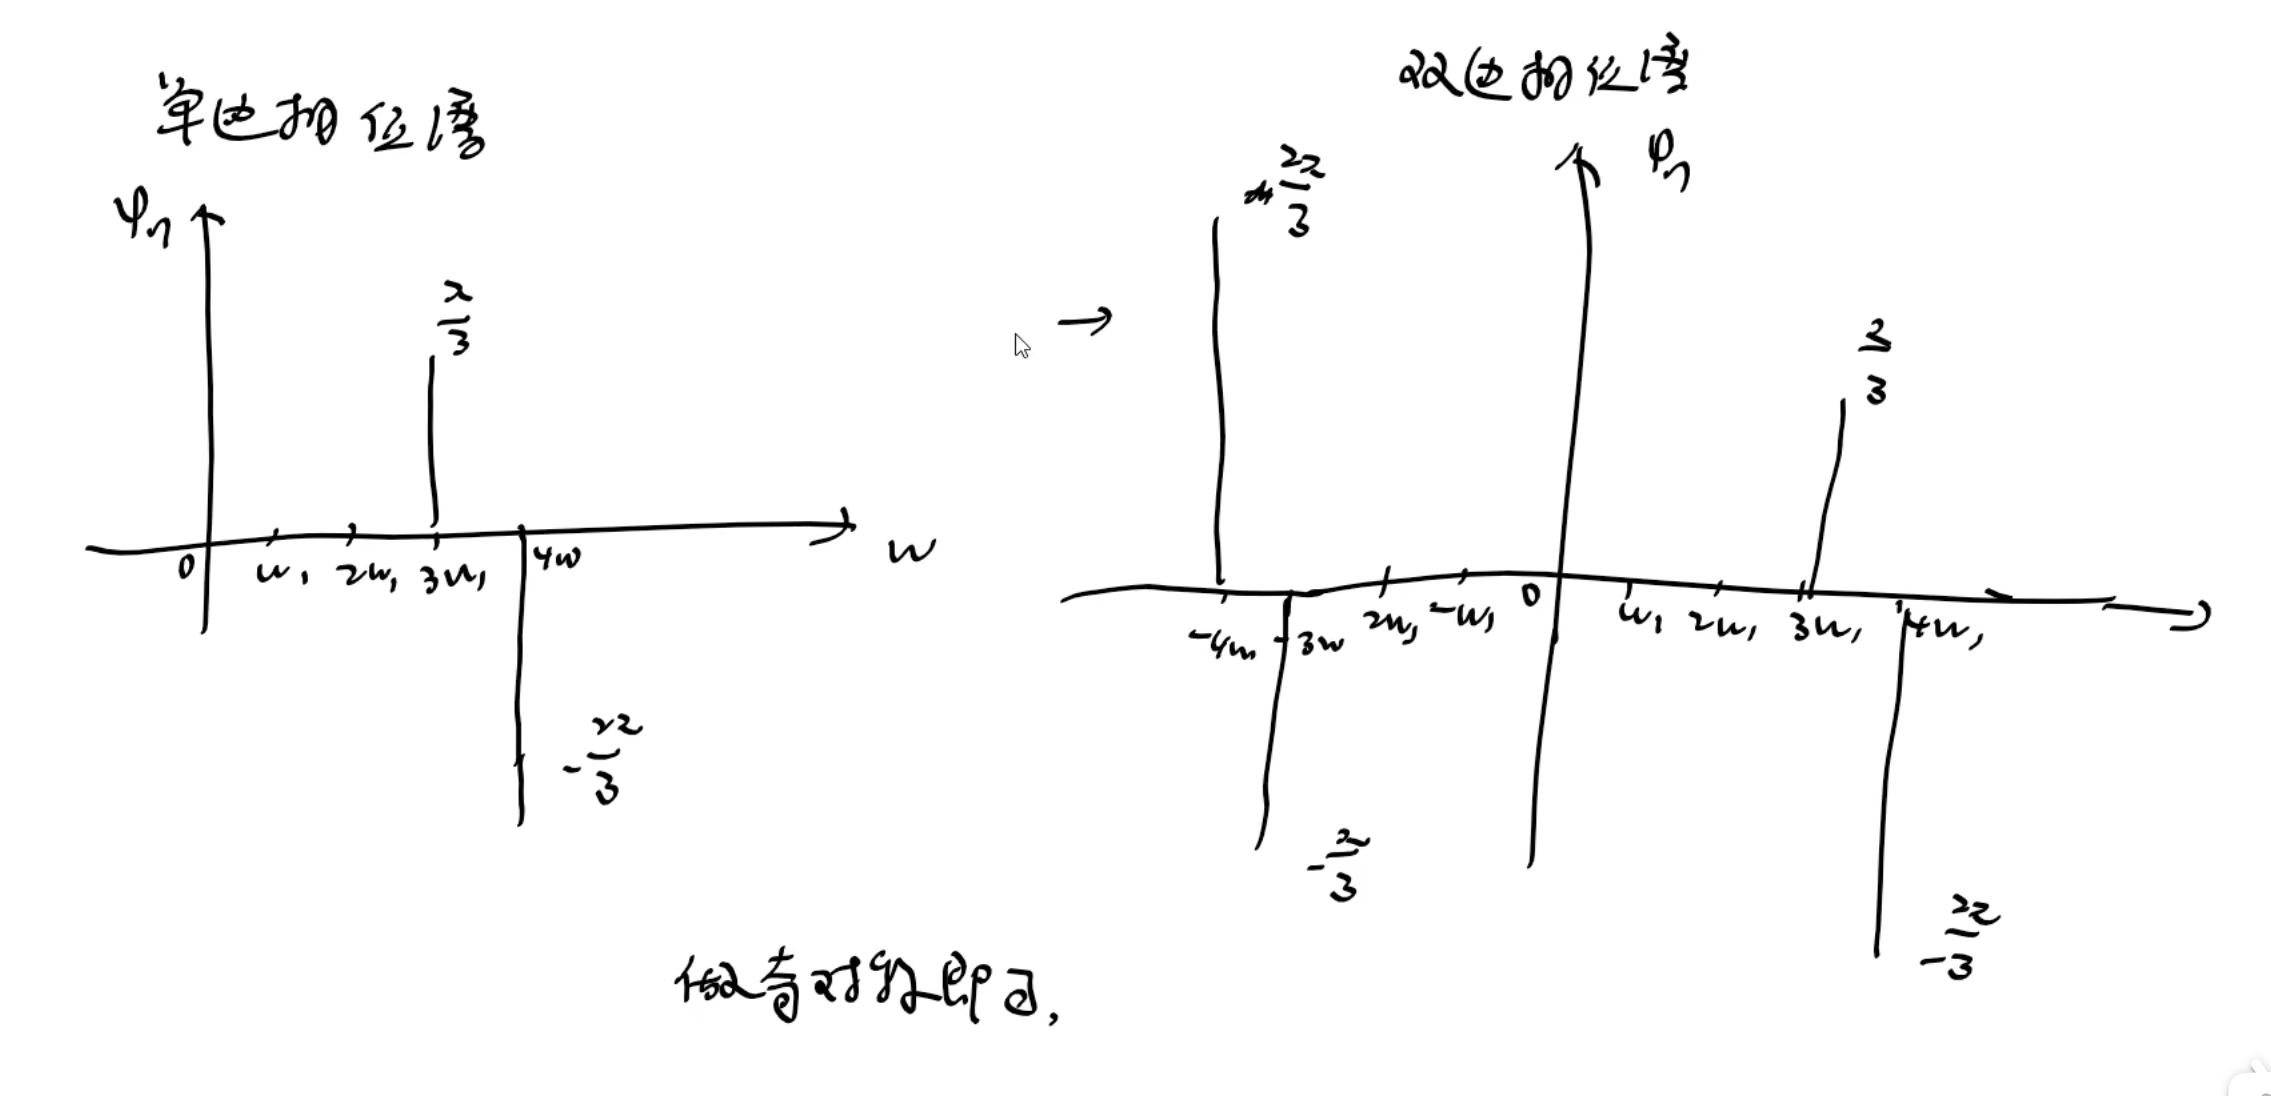 单边相位谱
φn
π/3
0 ω1 2ω1 3ω1 4ω
ω
-2π/3
→
双边相位谱
φn
2π/3
π/3
-4ω1 -3ω 2ω1 -ω1 0 ω1 2ω1 3ω1 4ω1
-π/3
-2π/3
做奇对称即可,